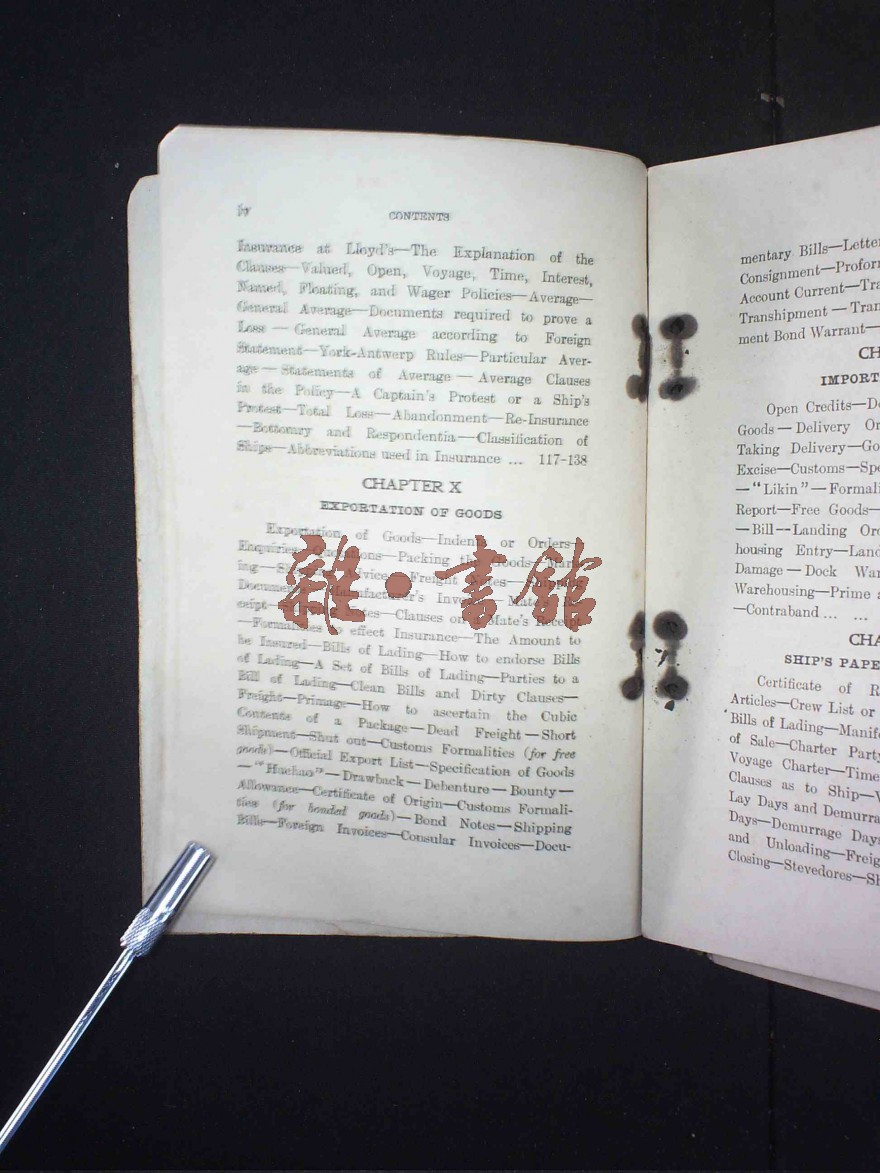 iv
CONTENTS
Insurance at Lloyd's—The Explanation of the
Clauses—Valued, Open, Voyage, Time, Interest,
Named, Floating, and Wager Policies—Average—
General Average—Documents required to prove a
Loss — General Average according to Foreign
Statement—York-Antwerp Rules—Particular Aver-
age — Statements of Average — Average Clauses
in the Policy—A Captain's Protest or a Ship's
Protest—Total Loss—Abandonment—Re-Insurance
—Bottomry and Respondentia—Classification of
Ships—Abbreviations used in Insurance ... 117-138
CHAPTER X
EXPORTATION OF GOODS
Exportation of Goods—Indents or Orders—
Enquiries—Quotations—Packing the Goods—Mark-
ing—Advice—Freight Notes—Shipping
Documents—Manufacturer's Mate's
Notes—Clauses on Mate's Receipt
—Formalities to effect Insurance—The Amount to
be Insured—Bills of Lading—How to endorse Bills
of Lading—A Set of Bills of Lading—Parties to a
Bill of Lading—Clean Bills and Dirty Clauses—
Freight—Primage—How to ascertain the Cubic
Contents of a Package—Dead Freight—Short
Shipment—Shut out—Customs Formalities (for free
goods)—Official Export List—Specification of Goods
—"Huchao"—Drawback—Debenture—Bounty—
Allowance—Certificate of Origin—Customs Formali-
ties (for bonded goods)—Bond Notes—Shipping
Bills—Foreign Invoices—Consular Invoices—Docu-
雜·書館
mentary Bills—Letter
Consignment—Profor
Account Current—Tra
Transhipment — Tran
ment Bond Warrant—
CH
IMPORT
Open Credits—De
Goods — Delivery Or
Taking Delivery—Go
Excise—Customs—Spe
—"Likin"—Formali
Report—Free Goods—
—Bill—Landing Ord
housing Entry—Land
Damage — Dock War
Warehousing—Prime a
—Contraband ... ...
CHA
SHIP'S PAPE
Certificate of R
Articles—Crew List or
Bills of Lading—Manife
of Sale—Charter Party
Voyage Charter—Time
Clauses as to Ship—V
Lay Days and Demurra
Days—Demurrage Days
and Unloading—Freig
Closing—Stevedores—Sh